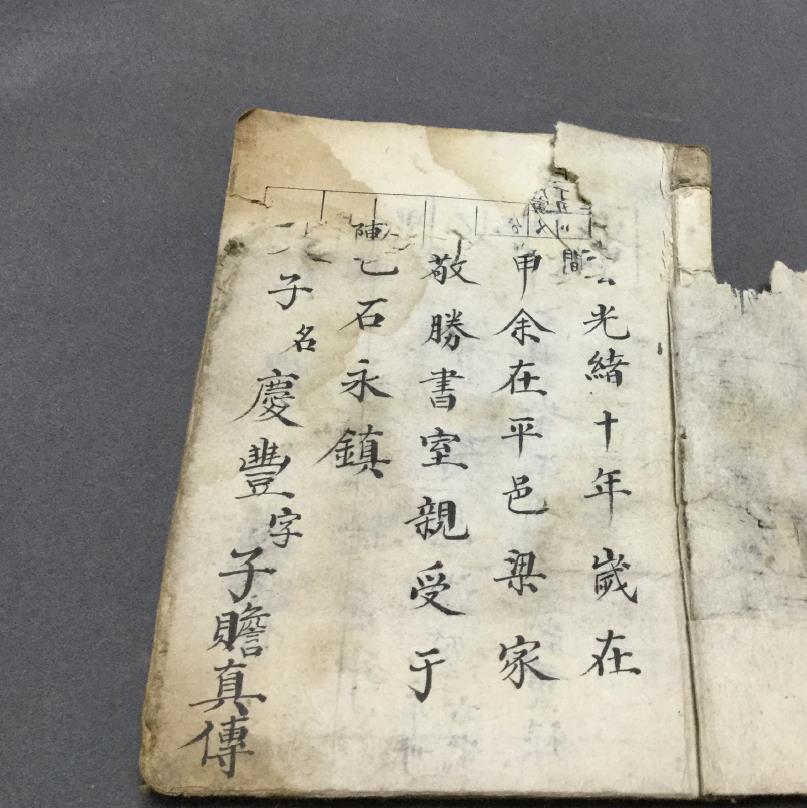 光緒十年歲在
甲余在平邑梁家
敬勝書室親受于
陳
石永鎮
子名慶豐字子贍真傳
間